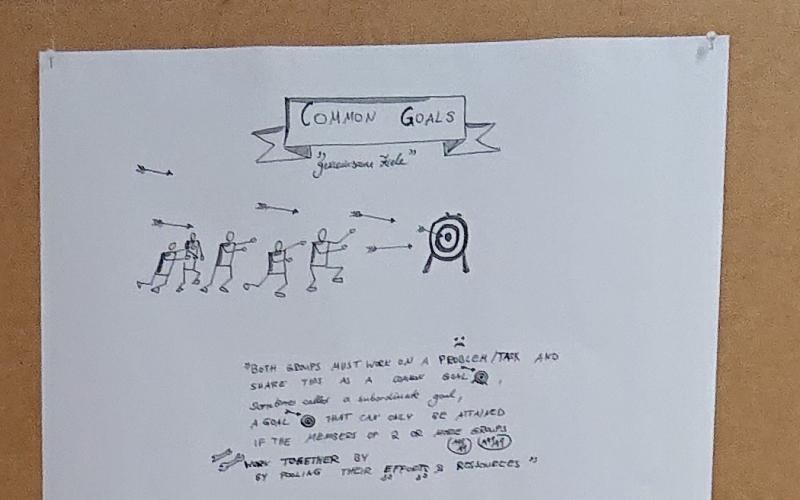 COMMON GOALS
"gemeinsame Ziele"
"BOTH GROUPS MUST WORK ON A PROBLEM/TASK AND
SHARE THIS AS A COMMON GOAL,
Sometimes called a subordinate goal,
A GOAL THAT CAN ONLY BE ATTAINED
IF THE MEMBERS OF 2 OR MORE GROUPS
WORK TOGETHER BY
BY POOLING THEIR EFFORTS & RESSOURCES"